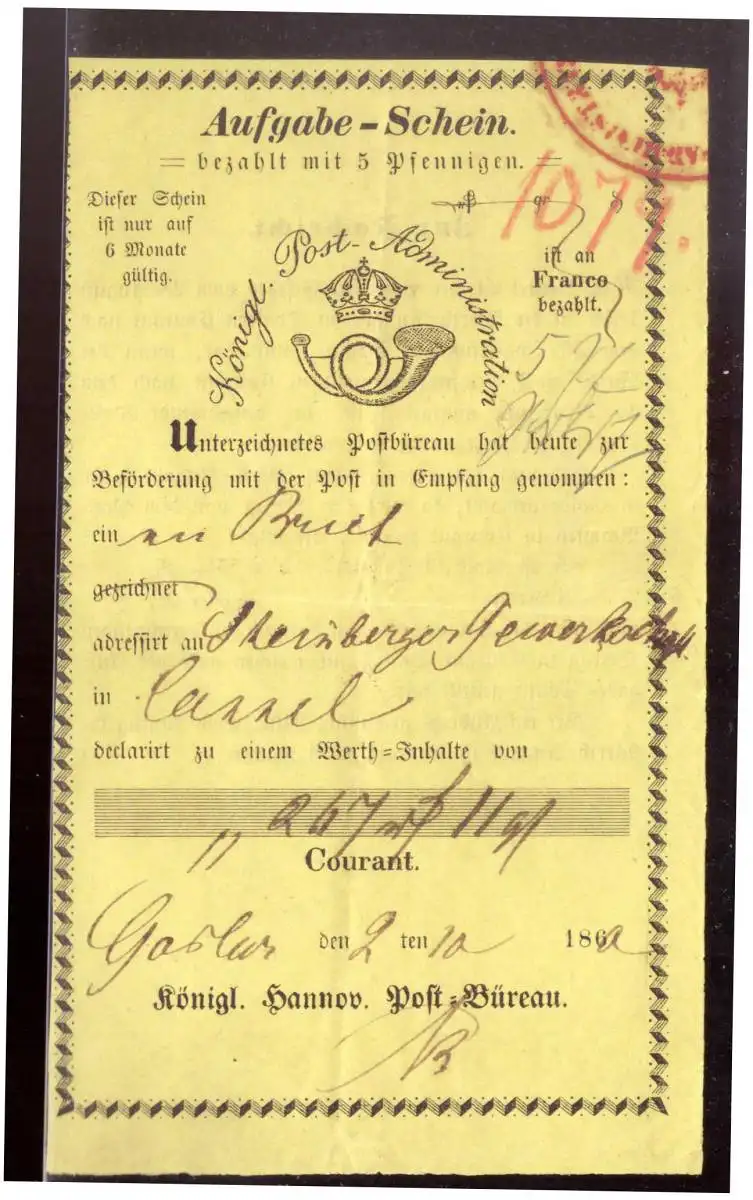 Aufgabe-Schein.
= bezahlt mit 5 Pfennigen. =
Dieser Schein
ist nur auf
6 Monate
gültig.
gr
1079.
ist an
Franco
bezahlt.
Königl. Post-Administration
Unterzeichnetes Postbüreau hat heute zur
Beförderung mit der Post in Empfang genommen:
ein en Brief
gezeichnet
adressirt an Sternberger Gewerkschaft
in Cassel
declarirt zu einem Werth-Inhalte von
" 267 rf 11 gr
Courant.
Goslar den 2 ten 10 1860
Königl. Hannov. Post-Büreau.